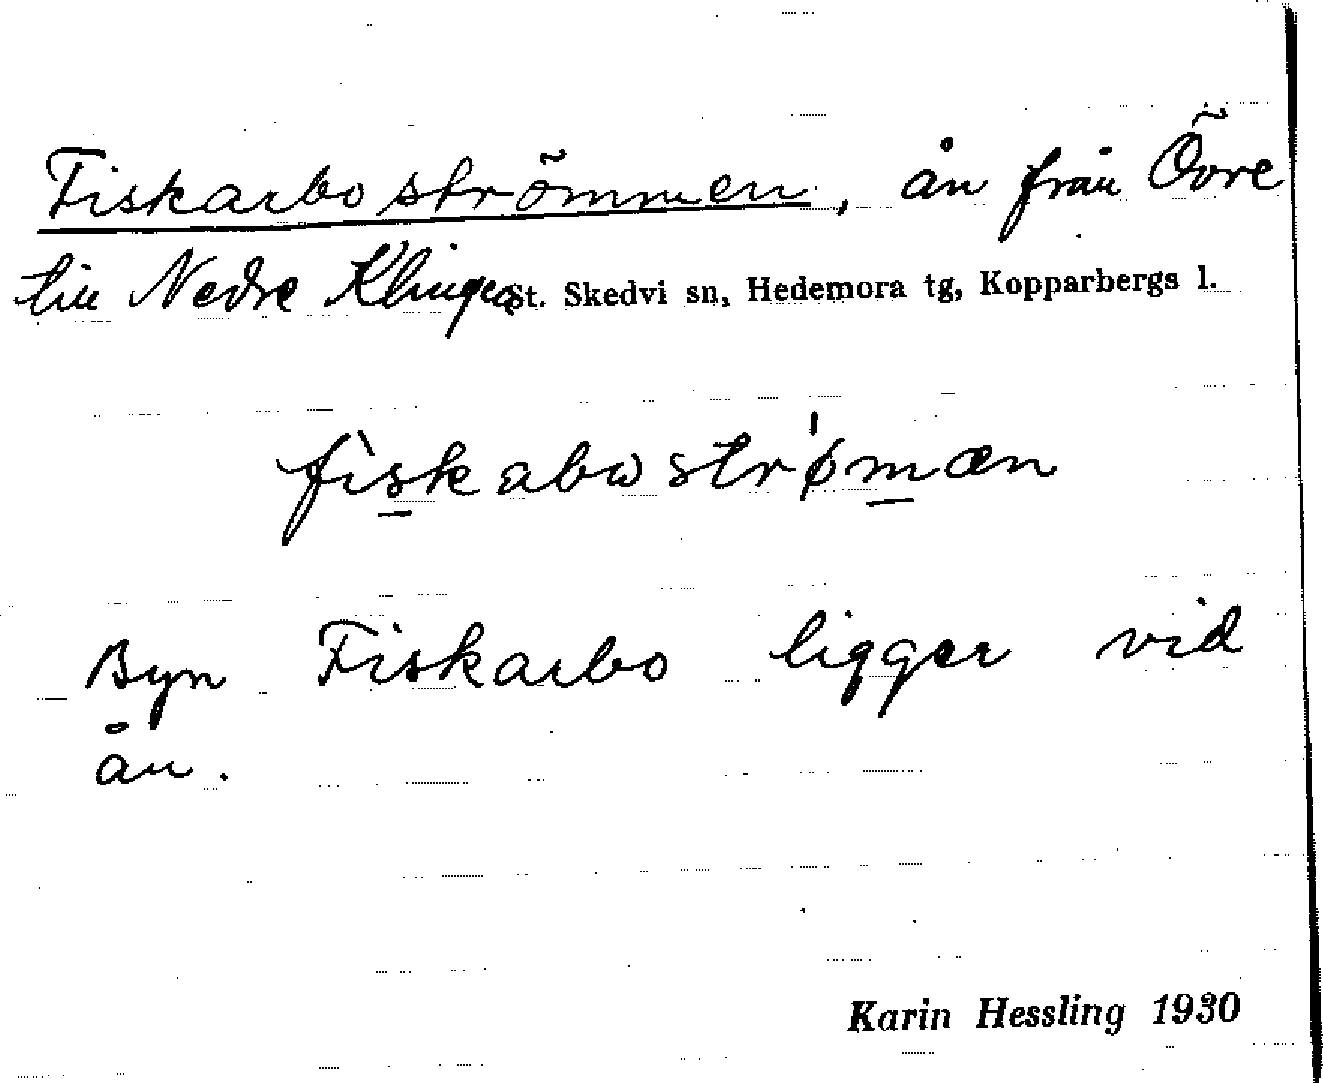 Fiskarboströmmen, ån från Övre
till Nedre Klingen St. Skedvi sn, Hedemora tg, Kopparbergs l.
fìskabωstrǿmæn
Byn Fiskarbo ligger vid
ån.
Karin Hessling 1930